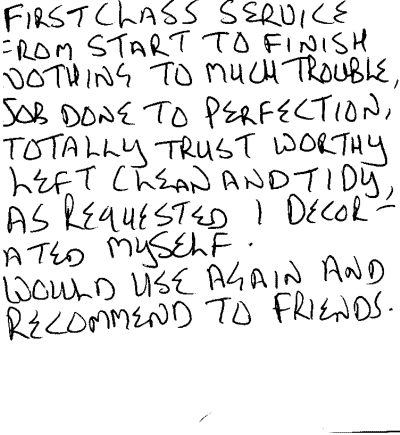 FIRST CLASS SERVICE
FROM START TO FINISH
NOTHING TO MUCH TROUBLE,
JOB DONE TO PERFECTION,
TOTALLY TRUST WORTHY
LEFT CLEAN AND TIDY,
AS REQUESTED I DECOR-
ATED MYSELF.
WOULD USE AGAIN AND
RECOMMEND TO FRIENDS.